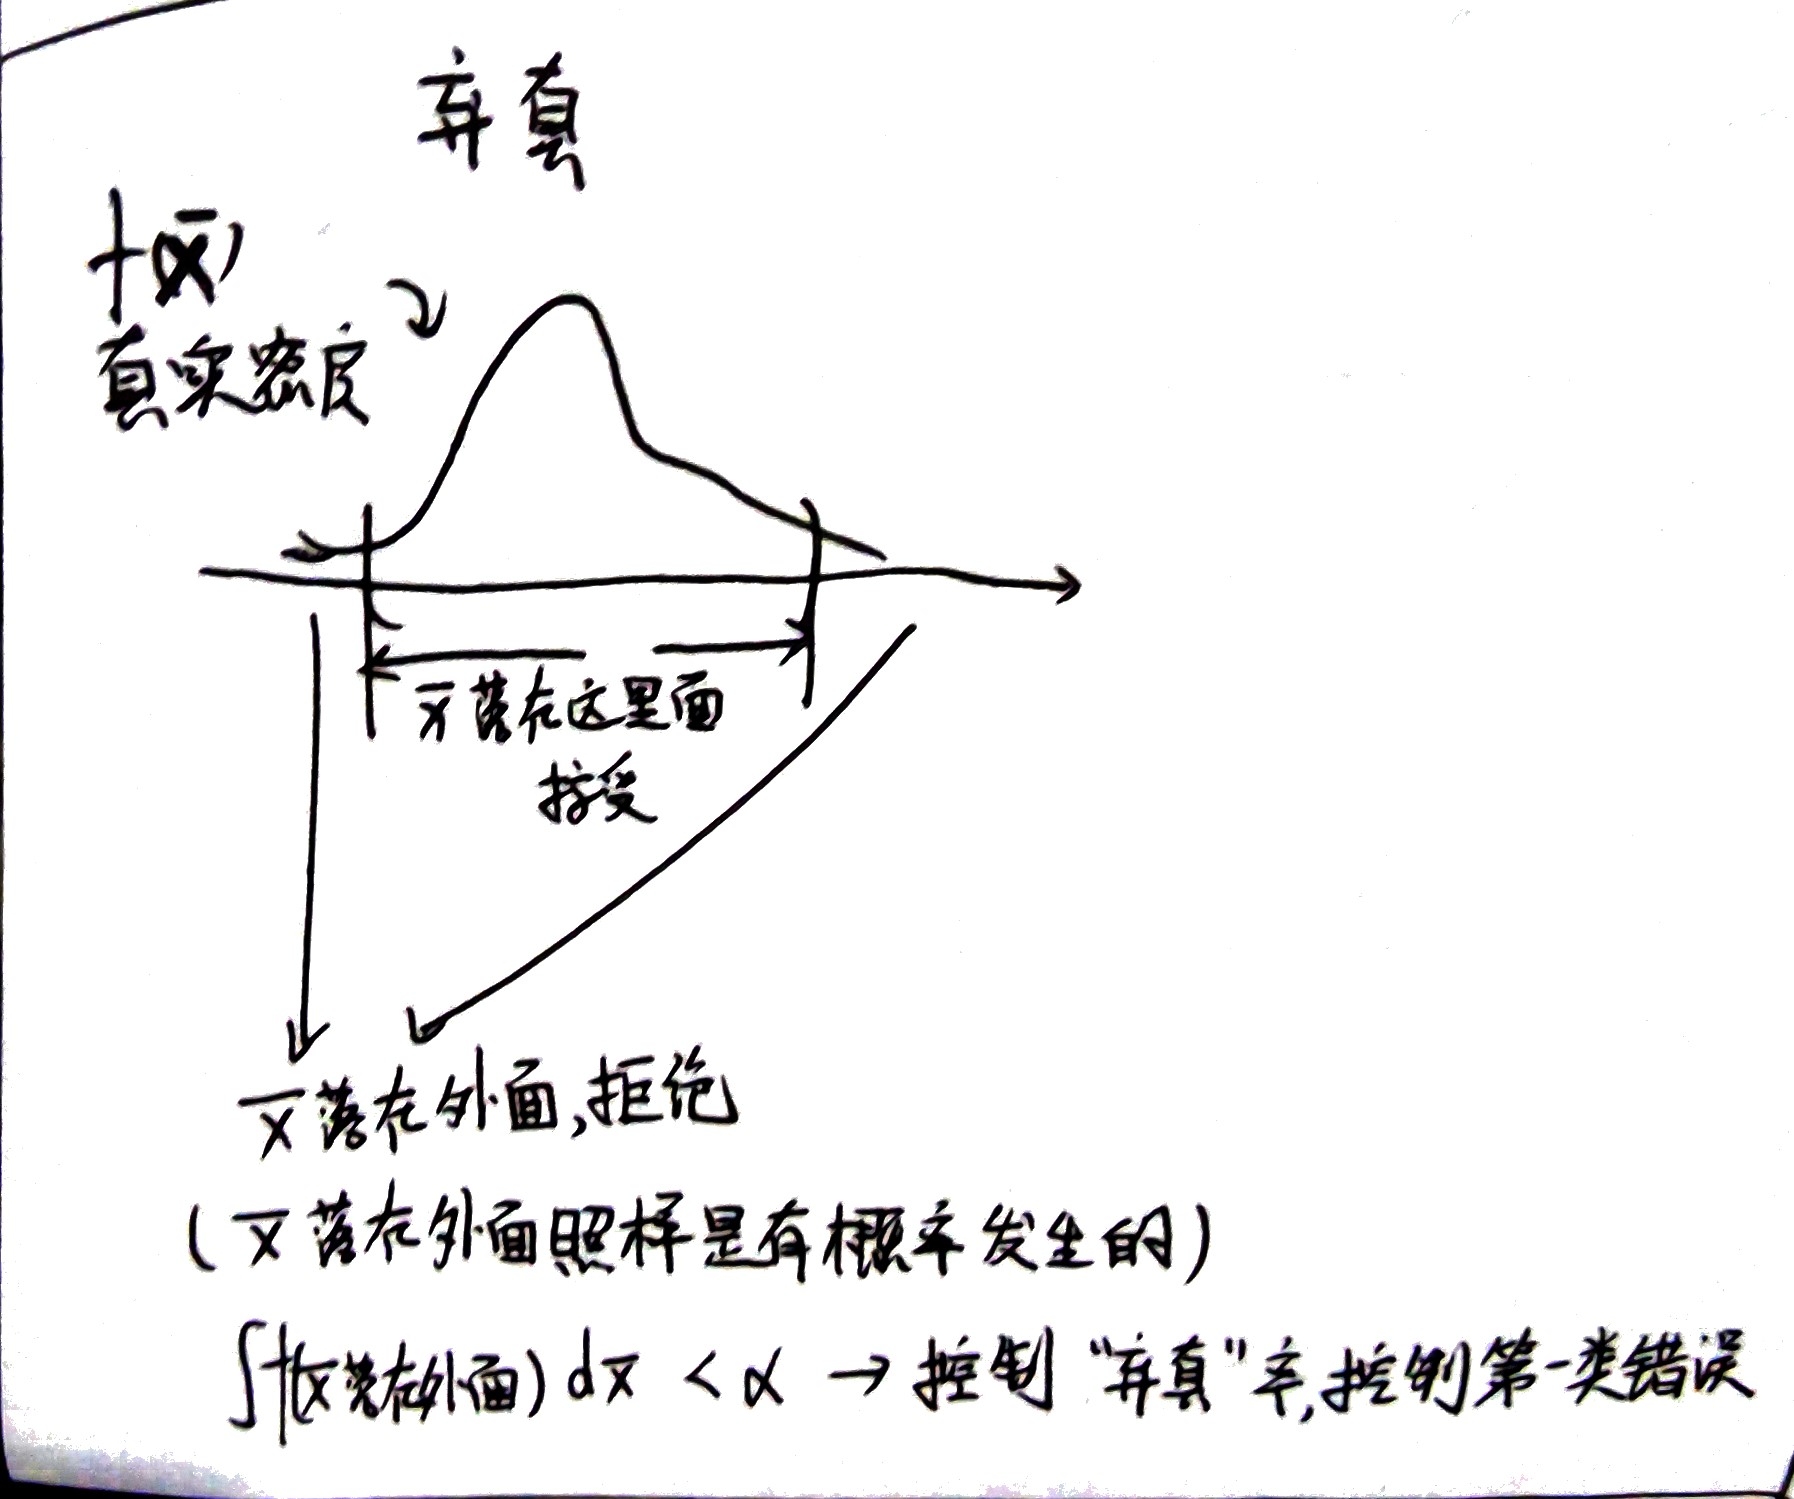 弃真
f(x̄)
真实密度
x̄落在这里面
接受
x̄落在外面,拒绝
(x̄落在外面照样是有概率发生的)
∫f(x̄落在外面)dx̄ < α → 控制“弃真”率,控制第一类错误